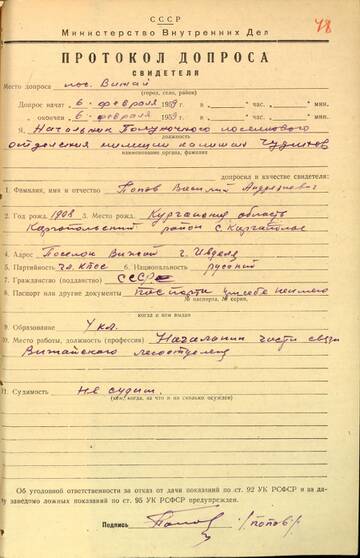 С С С Р
48
Министерство Внутренних Дел
ПРОТОКОЛ ДОПРОСА
СВИДЕТЕЛЯ
Место допроса пос. Вижай
(город, село, район)
Допрос начат „ 6 “ февраля 1959 г. в „ “ час. „ “ мин.
окончен „ 6 “ февраля 1959 г. в „ “ час. „ “ мин.
Я, Начальник Полуночного поселкового
должность
отделения милиции капитан Чудинов
наименование органа, фамилия
допросил в качестве свидетеля:
1. Фамилия, имя и отчество Попов Василий Андреевич
2. Год рожд. 1908 3. Место рожд. Курганская область
Каргопольский район с. Каргаполье
4. Адрес Поселок Вижай г. Ивделя
5. Партийность чл. КПСС 6. Национальность русский
7. Гражданство (подданство) СССР
8. Паспорт или другие документы паспорта при себе не имею
№ паспорта, № серия,
когда и кем выдан
9. Образование 4 кл.
10. Место работы, должность (профессия) Начальник части связи
Вижайского лесоотделения
11. Судимость Не судим.
(кем, когда, за что и на сколько осужден)
Об уголовной ответственности за отказ от дачи показаний по ст. 92 УК РСФСР и за да-
чу заведомо ложных показаний по ст. 95 УК РСФСР предупрежден.
Подпись Попов /ПОПОВ/